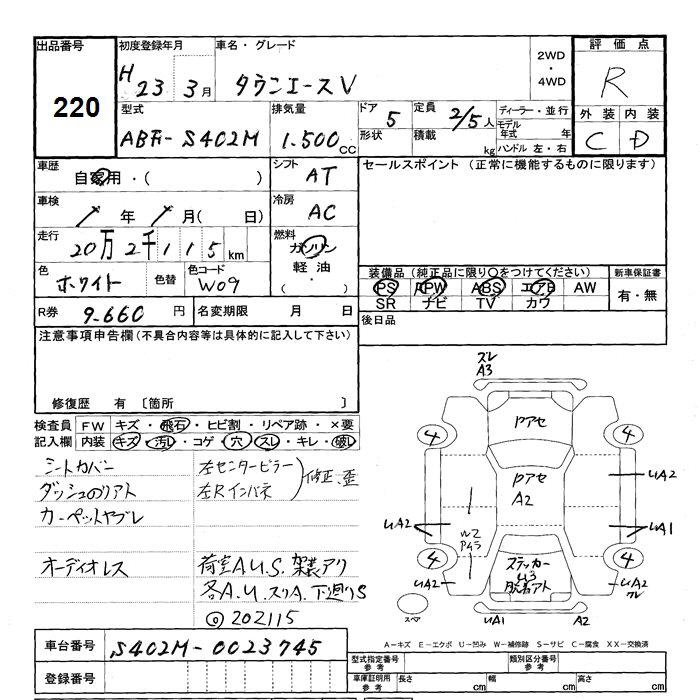 出品番号
220
初度登録年月
H 23 3月
車名・グレード
タウンエースV
2WD
・
4WD
評価点
R
外装 内装
C D
型式
ABF-S402M
排気量
1.500cc
ドア
5
形状
定員
2/5人
積載
kg
ディーラー・並行
モデル
年式 年
ハンドル 左・右
車歴
自家用・( )
シフト
AT
セールスポイント (正常に機能するものに限ります)
車検
/ 年 / 月( 日)
冷房
AC
走行
20万2千115km
燃料
ガソリン
軽油
色
ホワイト
色替
色コード
W09
装備品 (純正品に限り○をつけてください)
PS PW ABS エアB AW
SR ナビ TV カワ
新車保証書
有・無
R券
9.660円
名変期限 月 日
後日品
注意事項申告欄(不具合内容等は具体的に記入して下さい)
修復歴 有 〔箇所
検査員
記入欄
FW キズ・飛石・ヒビ割・リペア跡・×要
内装 キズ・汚レ・コゲ・穴・スレ・キレ・破レ
シートカバー
ダッシュのリアト
カーペットヤブレ
オーディオレス
左センターピラー
左Rインパネ
修正、歪
荷室AU.S.架装アク
各A.U.スリA.下廻りS
◎202115
ズレ
A3
Pアセ
Pアセ
A2
4
4
4
4
UA2
UA2
UA1
UA2
UA2
W2
ステッカー
U3
脱着アト
UA1
A2
スペア
A-キズ E-エクボ U-凹み W-補修跡 S-サビ C-腐食 XX-交換済
車台番号
S402M-0023745
登録番号
型式指定番号
参考
類別区分番号
参考
車庫証明用
参考
長さ cm
幅 cm
高さ cm